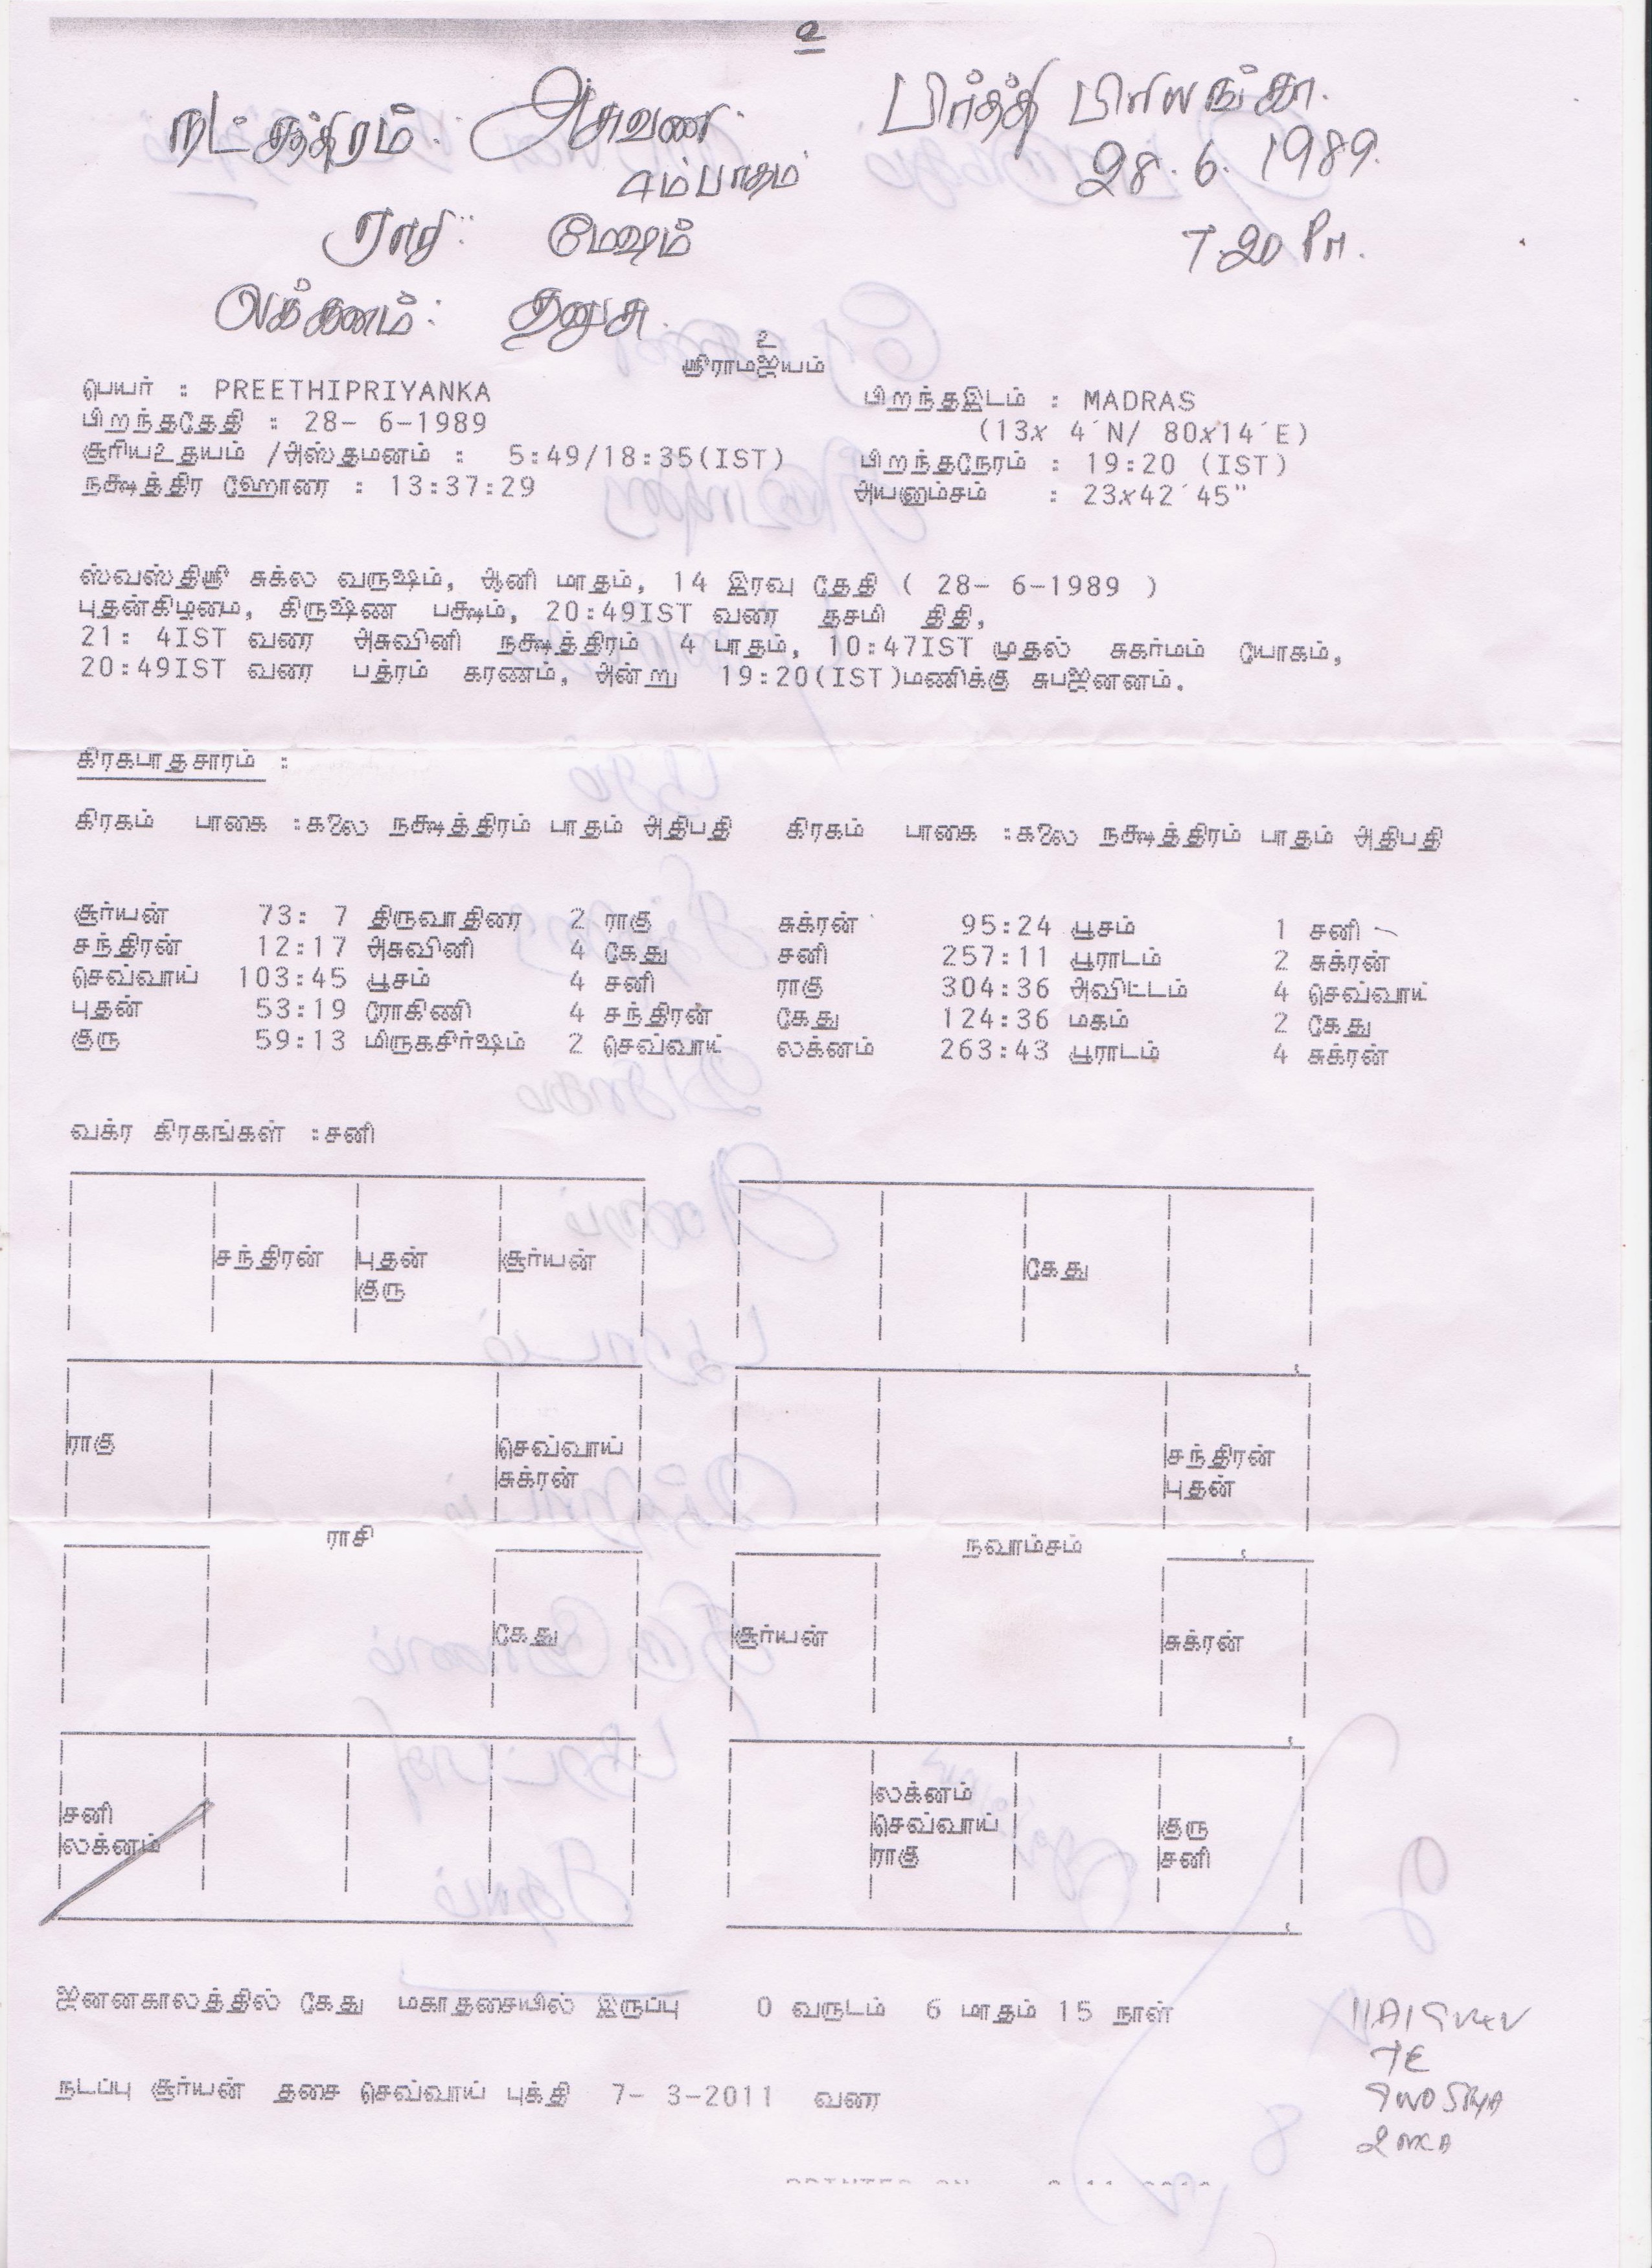 உ
நட்சத்திரம்: அசுவணி
4ம்பாதம்
ராசி: மேஷம்
லக்கனம்: தனுசு
பிரீத்தி பிரியங்கா.
28.6.1989.
7.20 PM.
உ
ஸ்ரீராமஜெயம்
பெயர் : PREETHIPRIYANKA
பிறந்ததேதி : 28- 6-1989
சூரியஉதயம் /அஸ்தமனம் : 5:49/18:35(IST)
நக்ஷத்திர ஹோரை : 13:37:29
பிறந்தஇடம் : MADRAS
(13x 4´N/ 80x14´E)
பிறந்தநேரம் : 19:20 (IST)
அயனாம்சம் : 23x42´45"
ஸ்வஸ்திஸ்ரீ சுக்ல வருஷம், ஆனி மாதம், 14 இரவு தேதி ( 28- 6-1989 )
புதன்கிழமை, கிருஷ்ண பக்ஷம், 20:49IST வரை தசமி திதி,
21: 4IST வரை அசுவினி நக்ஷத்திரம் 4 பாதம், 10:47IST முதல் சுகர்மம் யோகம்,
20:49IST வரை பத்ரம் கரணம், அன்று 19:20(IST)மணிக்கு சுபஜனனம்.
கிரகபாதசாரம் :
கிரகம் பாகை :கலை நக்ஷத்திரம் பாதம் அதிபதி கிரகம் பாகை :கலை நக்ஷத்திரம் பாதம் அதிபதி
சூர்யன் 73: 7 திருவாதிரை 2 ராகு சுக்ரன் 95:24 பூசம் 1 சனி
சந்திரன் 12:17 அசுவினி 4 கேது சனி 257:11 பூராடம் 2 சுக்ரன்
செவ்வாய் 103:45 பூசம் 4 சனி ராகு 304:36 அவிட்டம் 4 செவ்வாய்
புதன் 53:19 ரோகிணி 4 சந்திரன் கேது 124:36 மகம் 2 கேது
குரு 59:13 மிருகசிர்ஷம் 2 செவ்வாய் லக்னம் 263:43 பூராடம் 4 சுக்ரன்
வக்ர கிரகங்கள் :சனி
சந்திரன் புதன் சூர்யன்
குரு
ராகு செவ்வாய்
சுக்ரன்
ராசி
கேது
சனி
லக்னம்
கேது
சந்திரன்
புதன்
நவாம்சம்
சூர்யன் சுக்ரன்
லக்னம்
செவ்வாய் குரு
ராகு சனி
ஜனனகாலத்தில் கேது மகாதசையில் இருப்பு 0 வருடம் 6 மாதம் 15 நாள்
நடப்பு சூர்யன் தசை செவ்வாய் புக்தி 7- 3-2011 வரை